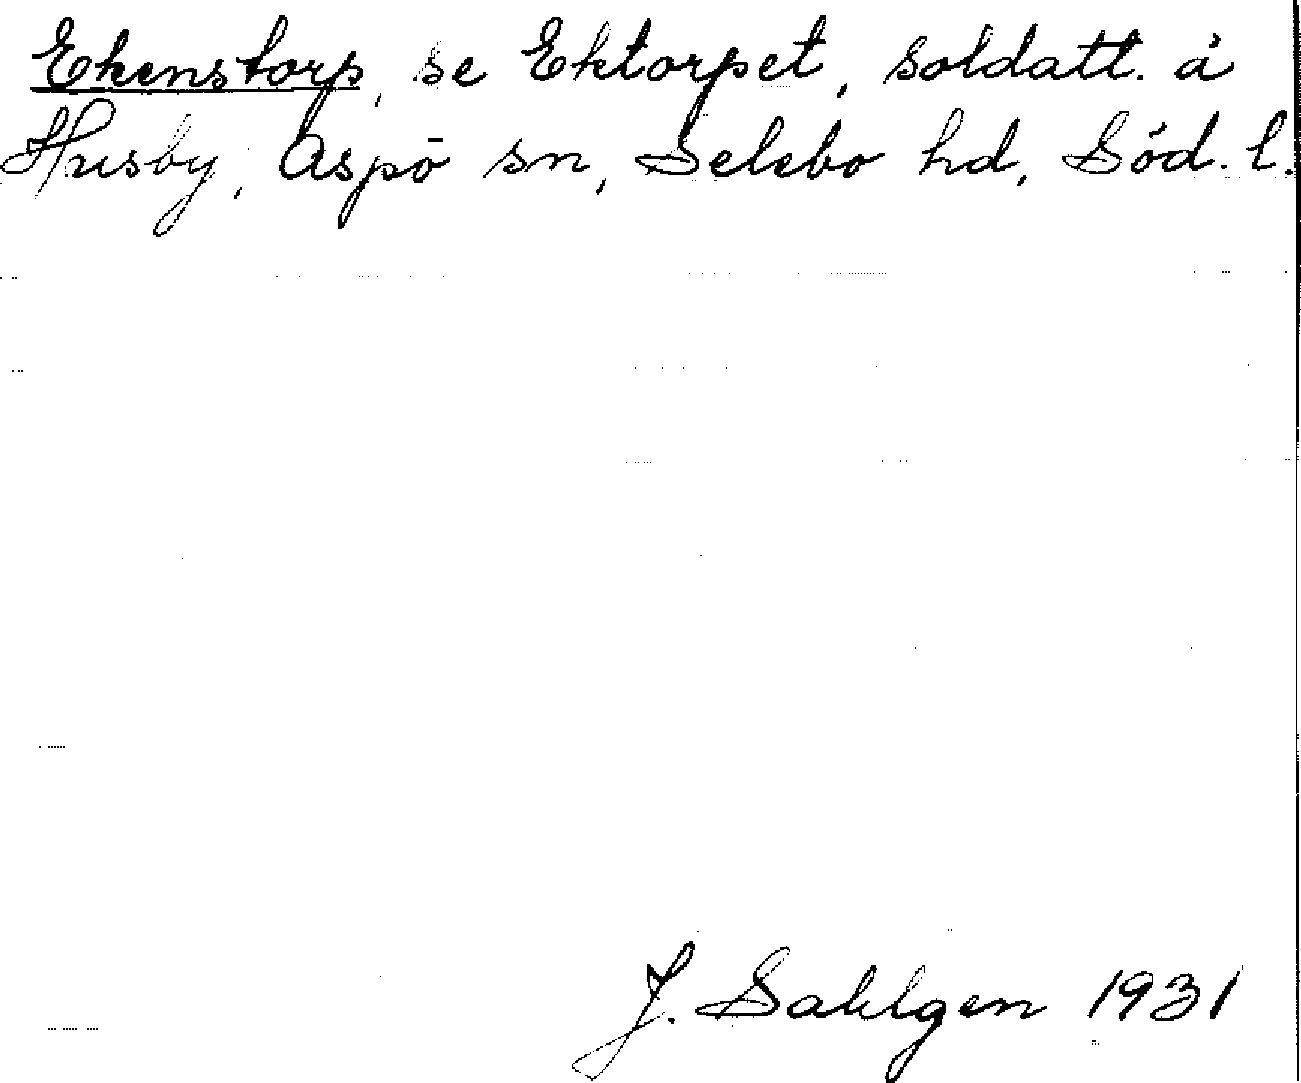 Ekenstorp, se Ektorpet, soldatt. å
Husby, Aspö sn, Selebo hd, Söd. l.
J. Sahlgen 1931